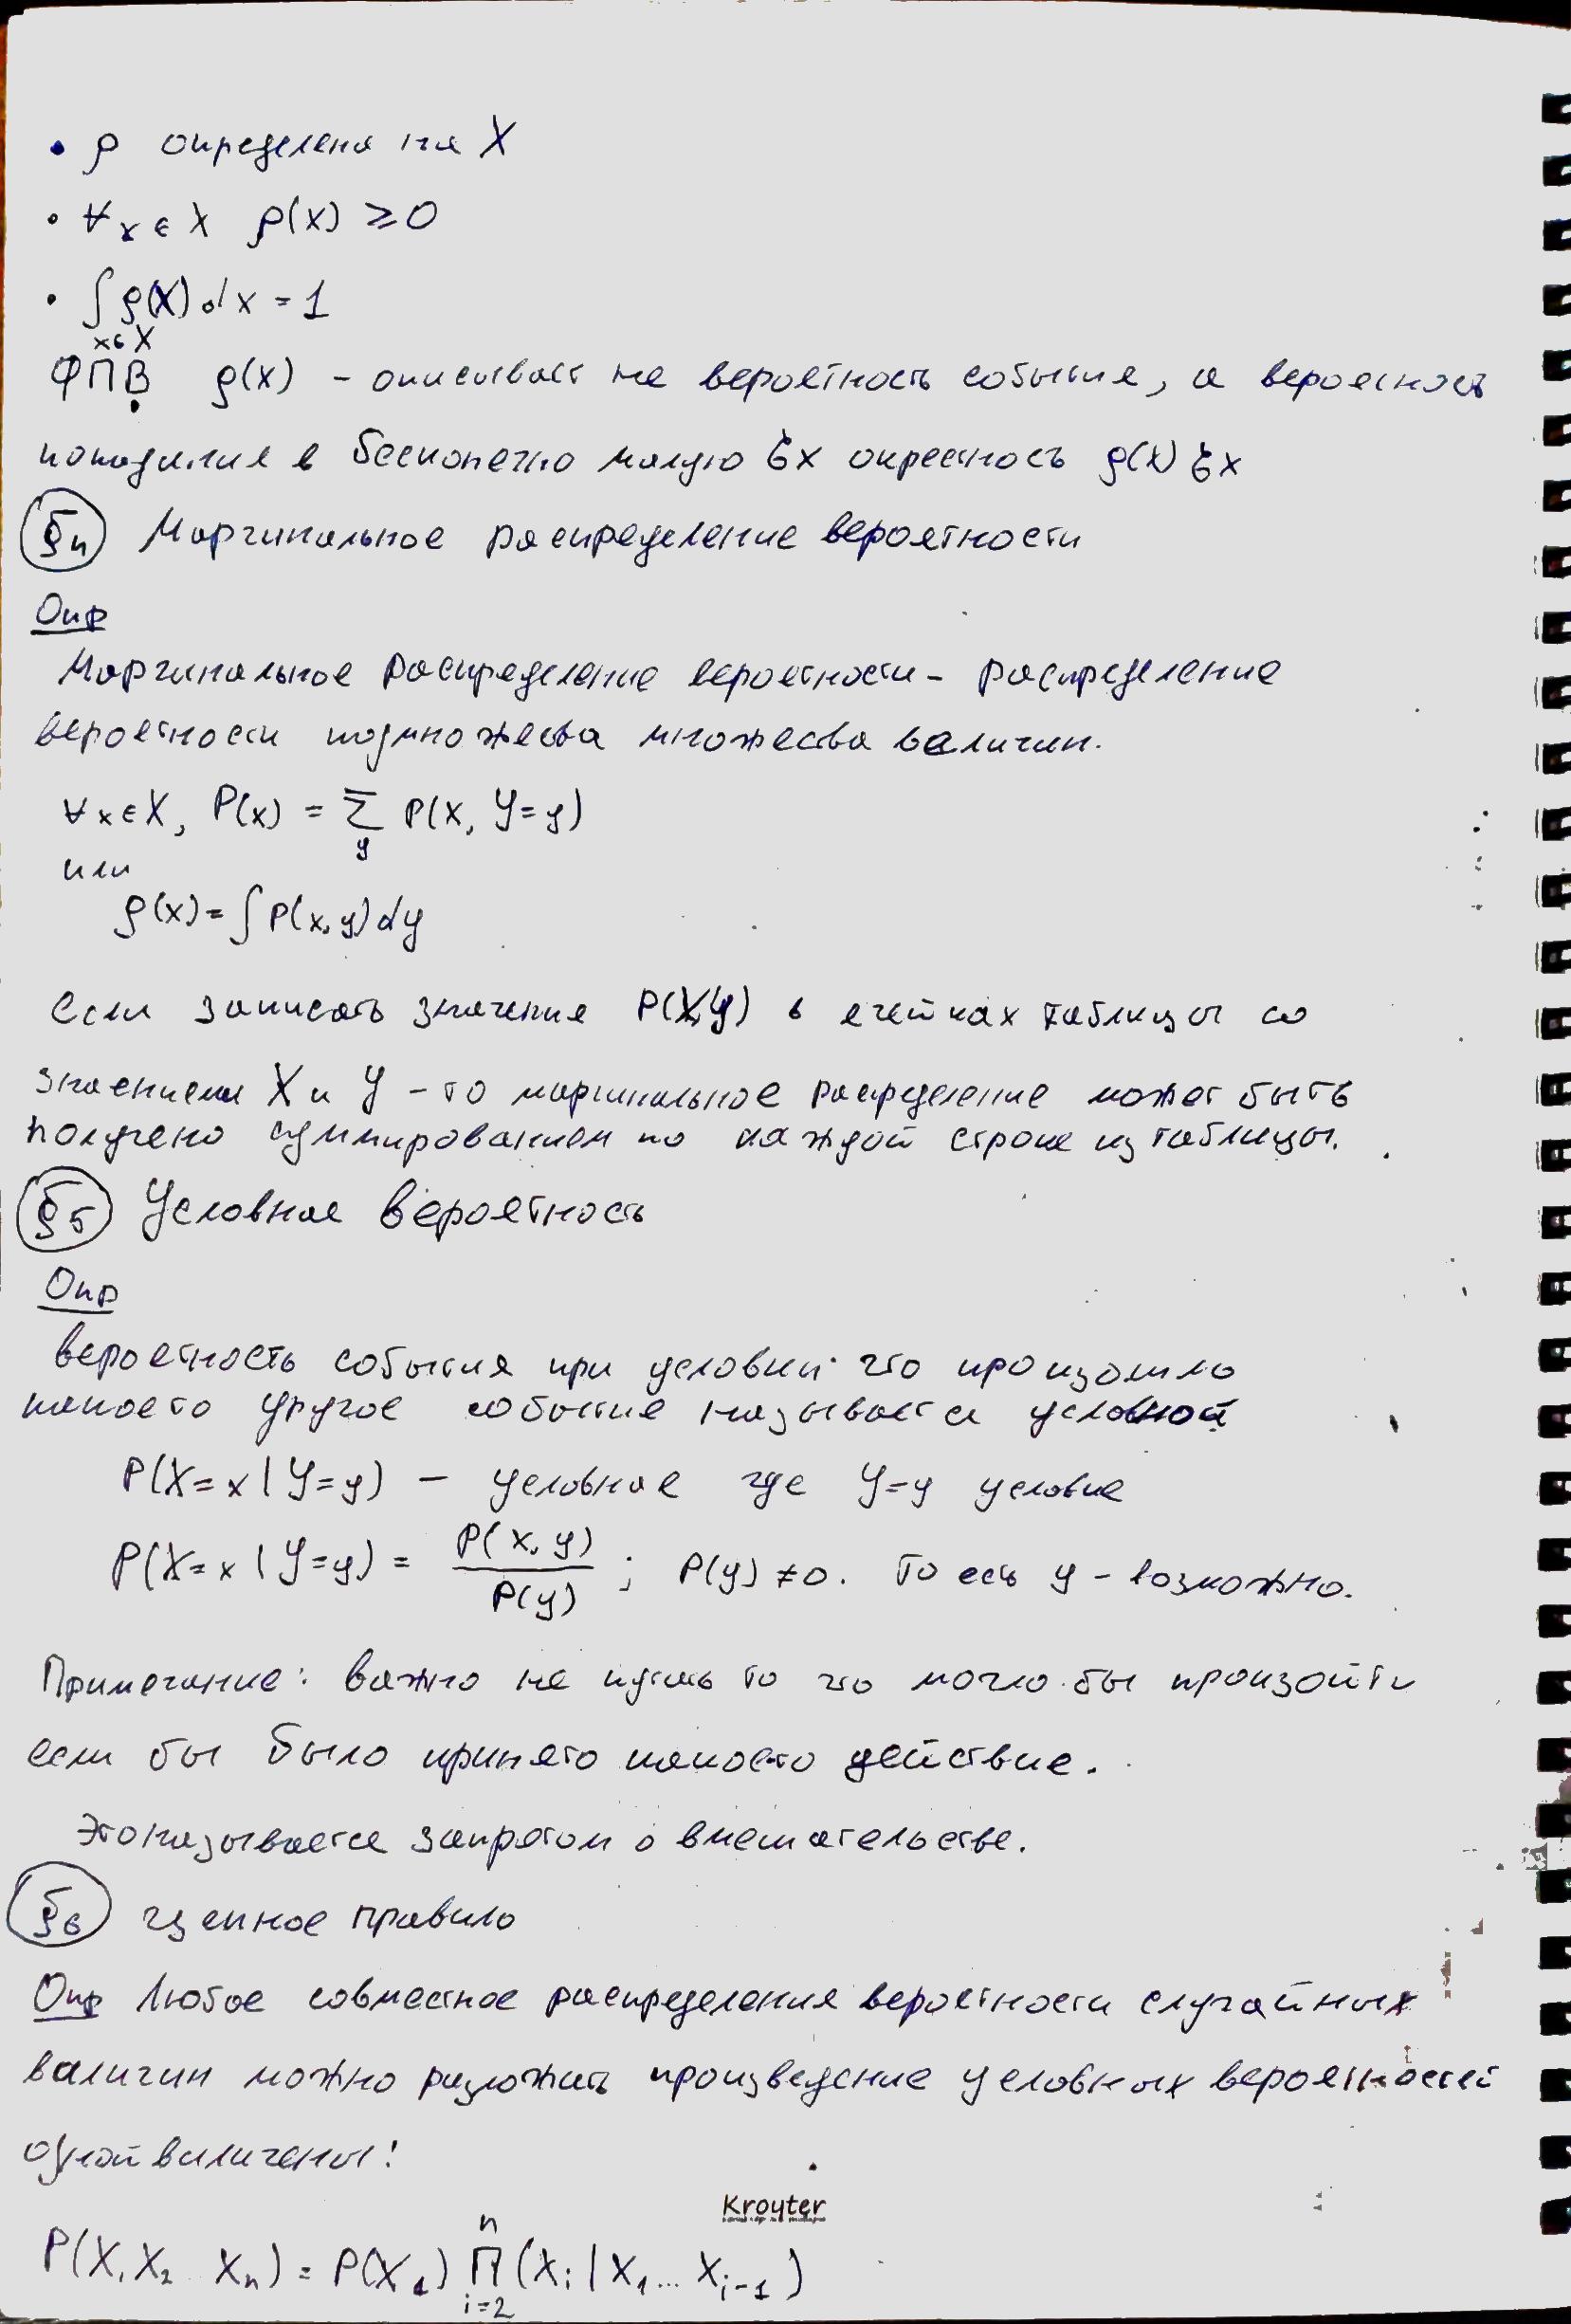 • ρ определена на X
• ∀x∈X ρ(x) ≥ 0
• ∫ρ(x)dx = 1
x∈X
ФПВ ρ(x) - описывает не вероятность события, а вероятность
попадания в бесконечно малую δx окресность ρ(x)δx
§4 Маргинальное распределение вероятности
Опр
Маргинальное распределение вероятности - распределение
вероятности подмножества множества величин.
∀x∈X, P(x) = Σ P(X, Y=y)
y
или
ρ(x) = ∫P(x,y)dy
если записать значения P(X,Y) в ячейках таблицы со
значениями X и Y - то маргинальное распределение может быть
получено суммированием по каждой строке из таблицы.
§5 Условная вероятность
Опр
вероятность события при условии что произошло
какоето другое событие называется условной
P(X=x|Y=y) - условная где Y=y условие
P(X=x|Y=y) = P(x,y)/P(y); P(y)≠0. То есть y - возможно.
Примечание: важно не путать то что могло бы произойти
если бы было принято какоето действие.
Это называется запретом о вмешательстве.
§6 цепное правило
Опр Любое совместное распределения вероятности случайных
величин можно разложить произведение условных вероятностей
одной величены:
Kroyter
P(X₁X₂ Xₙ) = P(X₁) ∏ (Xᵢ|X₁... Xᵢ₋₁)
n
i=2